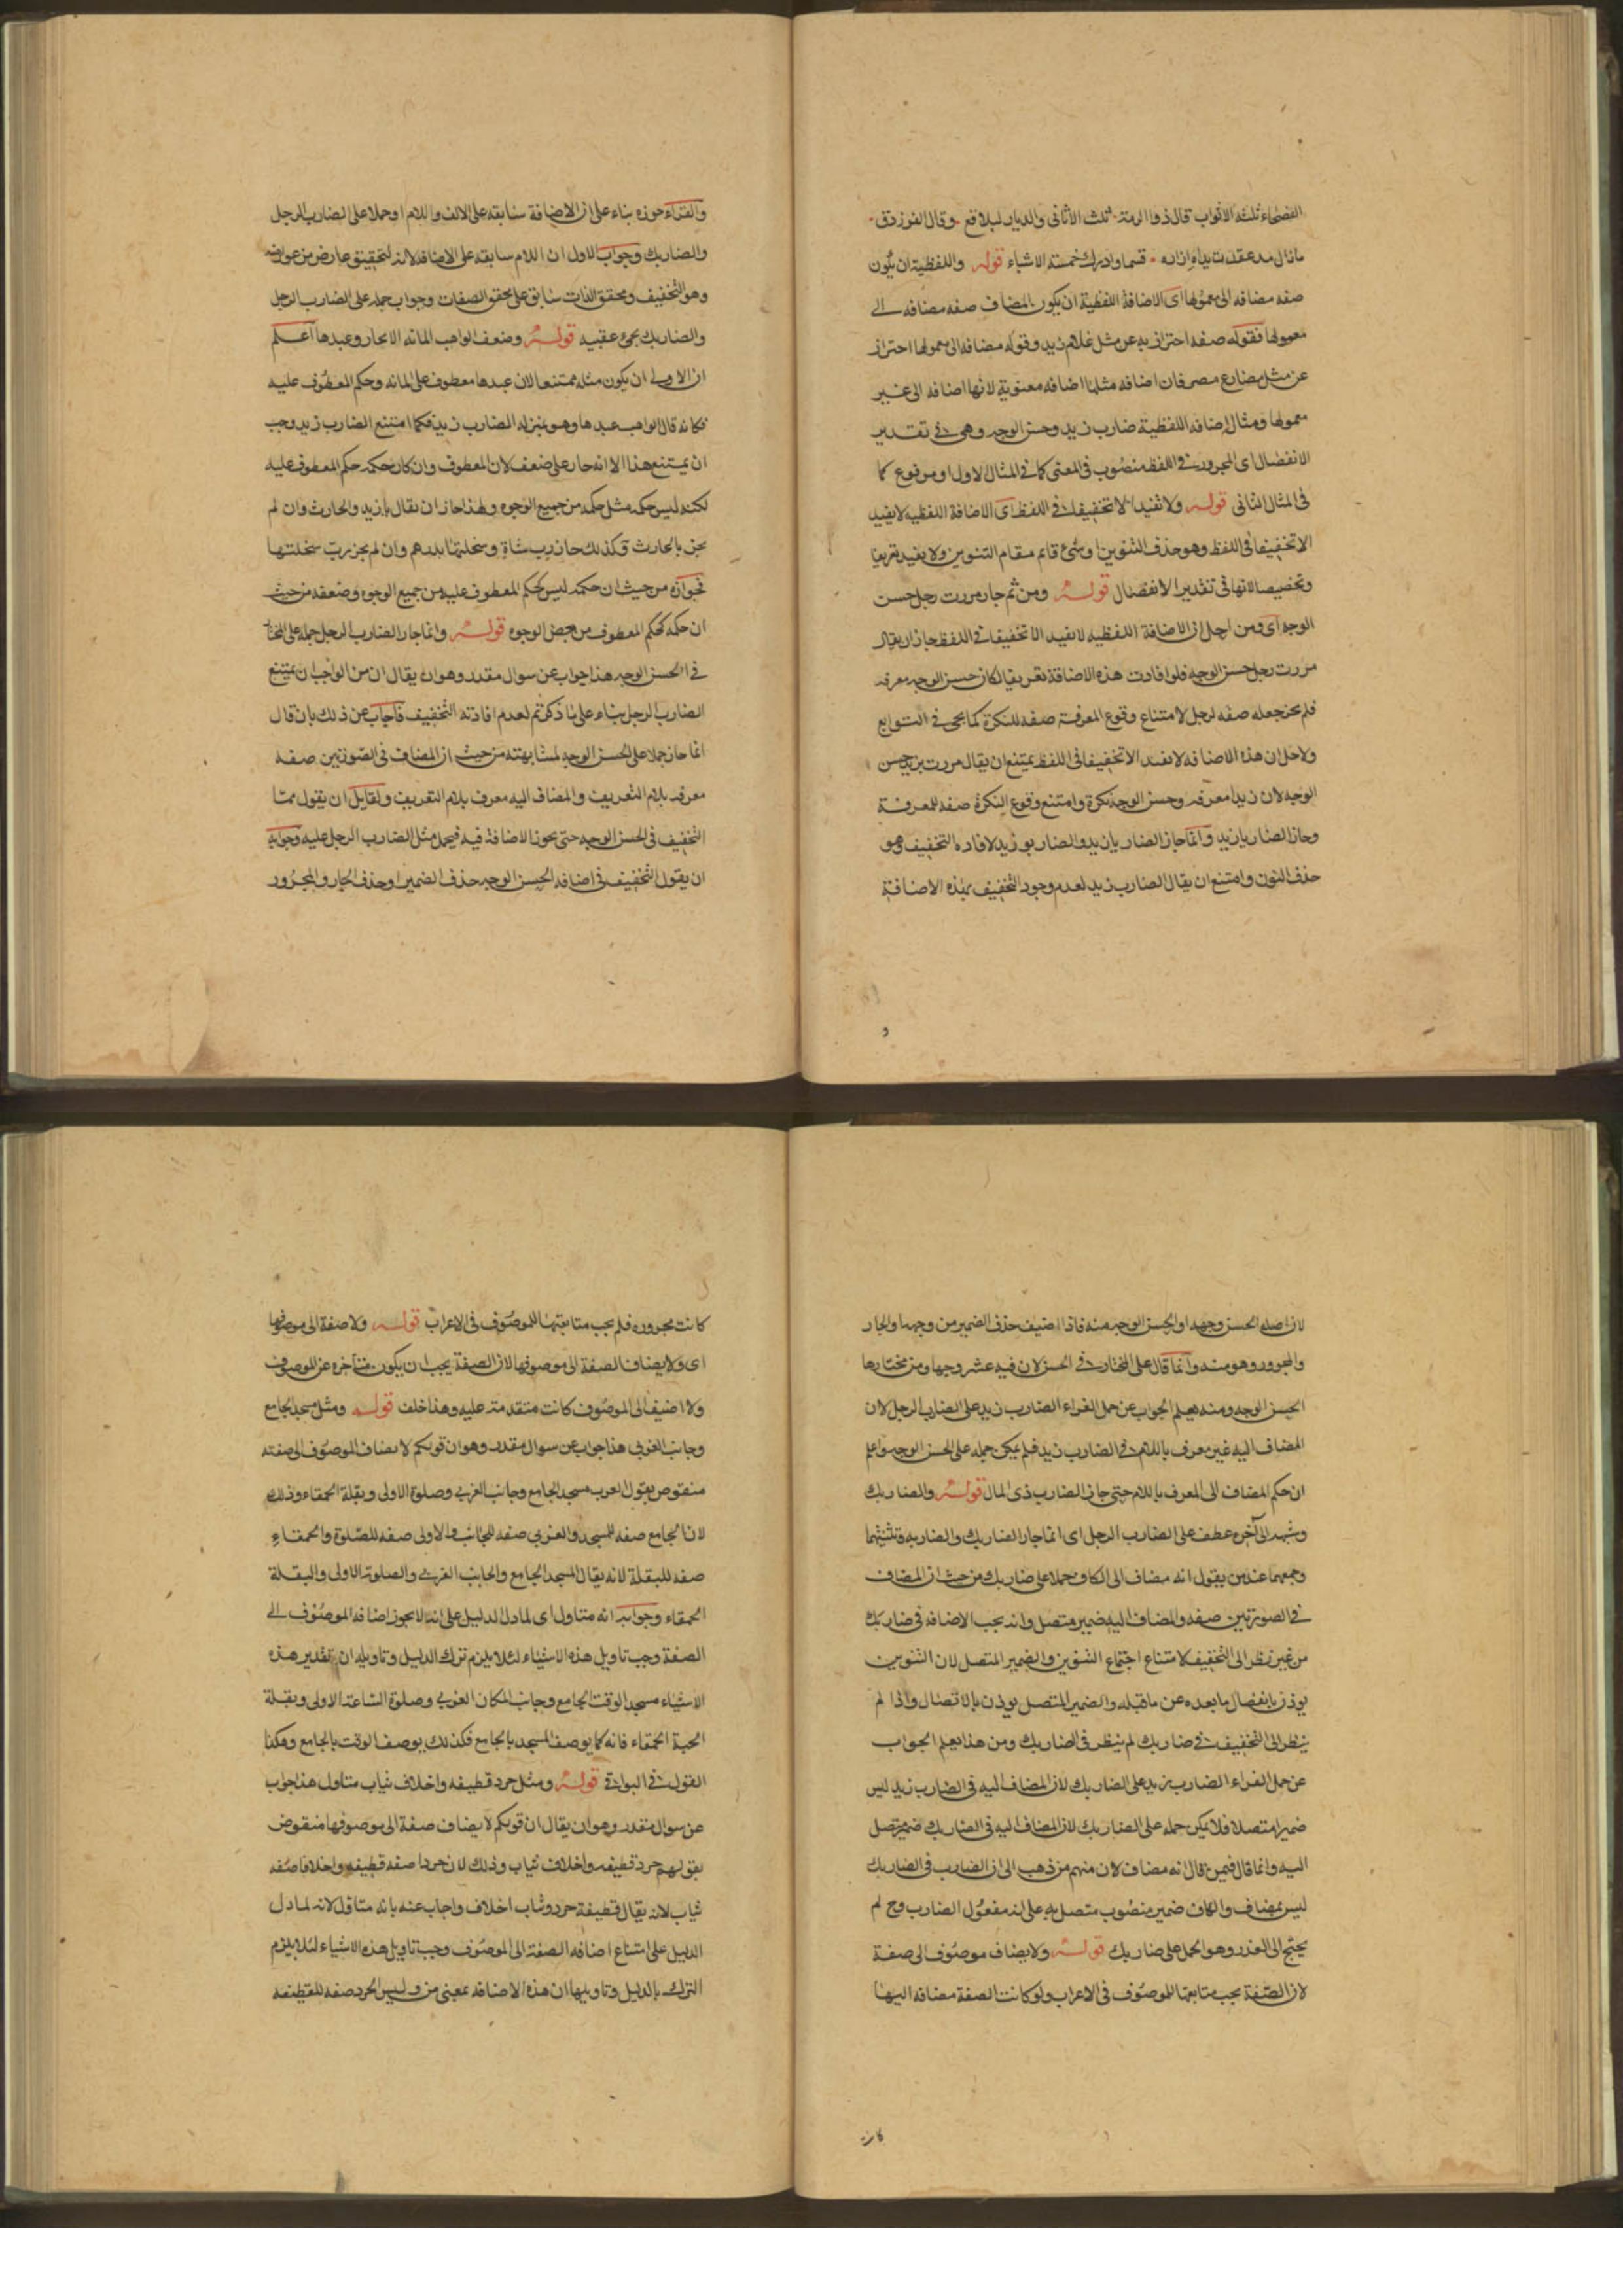 الفصحاء ثلثة الاثواب قال ذو الرمة ثلث الاثافى والديار البلاقع وقال الفرزدق
ما زال مذ عقدت يداه ازاره قسما وادرك خمسة الاشبار قوله واللفظية ان يكون
صفه مضافه الى معمولها اى الاضافة اللفظية ان يكون المضاف صفه مضافه الى
معمولها فقوله صفه احتراز به عن مثل غلام زيد وقوله مضافه الى معمولها احتراز
عن مثل مضارع مصر فان اضافه مثلها اضافه معنوية لانها اضافه الى غير
معمولها ومثال اضافه اللفظية ضارب زيد وحسن الوجه وهى فى تقدير
الانفصال اى المجرور فى اللفظ منصوب فى المعنى كما فى المثال الاول او مرفوع كما
فى المثال الثانى قوله ولا تفيد الا تخفيفا فى اللفظ اى الاضافة اللفظيه لا يفيد
الا تخفيفا فى اللفظ وهو حذف التنوين او شئ قائم مقام التنوين ولا يفيد تعريفا
وتخصيصا لانها فى تقدير الانفصال قوله ومن ثم جاز مررت برجل حسن
الوجه اى ومن اجل ان الاضافة اللفظيه لا يفيد الا تخفيفا فى اللفظ جاز ان يقال
مررت برجل حسن الوجه فلو افادت هذه الاضافة تعريفا لكان حسن الوجه معرفه
فلم يجز جعله صفه لرجل لامتناع وقوع المعرفة صفه للنكرة كما يجئ فى التوابع
ولاجل ان هذه الاضافه لا تفيد الا تخفيفا فى اللفظ يمتنع ان يقال مررت بزيد حسن
الوجه لان زيدا معرفه وحسن الوجه نكرة وامتنع وقوع النكرة صفه للمعرفة
وجاز الضاربا زيد وانما جاز الضاربا زيد والضاربو زيد لافاده التخفيف وهو
حذف النون وامتنع ان يقال الضارب زيد لعدم وجود التخفيف بهذه الاضافة
والفراء جوزه بناء على ان الاضافة سابقه على الالف واللام او حملا على الضارب الرجل
والضاربك وجواب الاول ان اللام سابقه على الاضافه لانه لتحقيق عارض من عوارضه
وهو التخفيف وتحقق الذات سابق على تحقق الصفات وجواب حمله على الضارب الرجل
والضاربك يجئ عقيبه قوله وضعف الواهب المائه الابجار وعبدها اعلم
ان الاولى ان يكون مثله ممتنعا لان عبدها معطوف على المائه وحكم المعطوف عليه
فكانه قال الواهب عبدها وهو بمنزله الضارب زيد فكما امتنع الضارب زيد وجب
ان يمتنع هذا الا انه جاز على ضعف لان المعطوف وان كان حكمه حكم المعطوف عليه
لكنه ليس حكمه مثل حكمه من جميع الوجوه ولهذا جاز ان يقال يا زيد والحارث وان لم
يجز يا الحارث فكذلك جاز رب شاة وسخلتها بدرهم وان لم يجز رب سخلتها
فجوازه من حيث ان حكمه ليس كحكم المعطوف عليه من جميع الوجوه وضعفه من حيث
ان حكمه كحكم المعطوف من بعض الوجوه قوله وانما جاز الضارب الرجل حملا على المختار
فى الحسن الوجه هذا جواب عن سوال مقدر وهو ان يقال ان من الواجب ان يمتنع
الضارب الرجل بناء على ما ذكرتم لعدم افادته التخفيف فاجاب عن ذلك بان قال
انما جاز حملا على الحسن الوجه لمشابهته من حيث ان المضاف فى الصورتين صفه
معرفه بلام التعريف والمضاف اليه معرف بلام التعريف ولقايل ان يقول ممتا
التخفيف فى الحسن الوجه حتى يجوز الاضافة فيه فيحمل مثل الضارب الرجل عليه وجوابه
ان يقول التخفيف فى اضافه الحسن الوجه حذف الضمير او حذف الجار والمجرور
لان اصله الحسن وجهه او الحسن الوجه منه فاذا اضيف حذف الضمير من وجهه او الجار
والمجرور وهو منه وانما قال على المختار فى الحسن لان فيه عشر وجها ومن مختارها
الحسن الوجه ومنه يعلم الجواب عن حمل الفراء الضارب زيد على الضارب الرجل لان
المضاف اليه غير معرف باللام فى الضارب زيد فلم يمكن حمله على الحسن الوجه واعلم
ان حكم المضاف الى المعرف باللام حتى جاز الضارب ذى المال قوله والضاربك
وشبهه الى آخره عطف على الضارب الرجل اى انما جاز الضاربك والضاربه وتثنيتهما
وجمعهما عند من يقول انه مضاف الى الكاف حملا على ضاربك من حيث ان المضاف
فى الصورتين صفه والمضاف اليه ضمير متصل وانه يجب الاضافه فى ضاربك
من غير نظر الى التخفيف لامتناع اجتماع التنوين والضمير المتصل لان التنوين
يوذن بانفصال ما بعده عن ما قبله والضمير المتصل يوذن بالاتصال واذا لم
ينظر الى التخفيف فى ضاربك لم ينظر فى الضاربك ومن هذا يعلم الجواب
عن حمل الفراء الضارب زيد على الضاربك لان المضاف اليه فى الضارب زيد ليس
ضميرا متصلا فلا يمكن حمله على الضاربك لان المضاف اليه فى الضاربك ضمير متصل
اليه وانما قال فيمن قال انه مضاف لان منهم من ذهب الى ان الضارب فى الضاربك
ليس بمضاف والكاف ضمير منصوب متصل به على انه مفعول الضارب وح لم
يحتج الى العذر وهو الحمل على ضاربك قوله ولا يضاف موصوف الى صفة
لان الصفة يجب متابعتها للموصوف فى الاعراب ولو كانت الصفة مضافه اليها
كانت
كانت مجروره فلم يجب متابعتها للموصوف فى الاعراب قوله ولا صفة الى موصوفها
اى ولا يضاف الصفة الى موصوفها لان الصفة يجب ان يكون متاخره عن الموصوف
ولا اضيف الى الموصوف كانت متقدمة عليه وهذا خلف قوله ومثل مسجد الجامع
وجانب الغربى هذا جواب عن سوال مقدر وهو ان قولكم لا يضاف الموصوف الى صفته
منقوص بقول العرب مسجد الجامع وجانب الغربى وصلوة الاولى وبقلة الحمقاء وذلك
لان الجامع صفه للمسجد والغربى صفه للجانب والاولى صفه للصلوة والحمقاء
صفه للبقلة لانه يقال المسجد الجامع والجانب الغربى والصلوة الاولى والبقلة
الحمقاء وجوابه انه متاول اى لما دل الدليل على انه لا يجوز اضافه الموصوف الى
الصفة وجب تاويل هذه الاشياء لئلا يلزم ترك الدليل وتاويله ان تقدير هذه
الاشياء مسجد الوقت الجامع وجانب المكان الغربى وصلوة الساعة الاولى وبقلة
الحبة الحمقاء فانه كما يوصف المسجد بالجامع فكذلك يوصف الوقت بالجامع وهكذا
القول فى البواقى قوله ومثل جرد قطيفه واخلاق ثياب متاول هذا جواب
عن سوال مقدر وهو ان يقال ان قولكم لا يضاف صفة الى موصوفها منقوض
بقولهم جرد قطيفه واخلاق ثياب وذلك لان جردا صفه قطيفه واخلاقا صفه
ثياب لانه يقال قطيفة جرد وثياب اخلاق واجاب عنه بانه متاول لانه لما دل
الدليل على امتناع اضافه الصفة الى الموصوف وجب تاويل هذه الاشياء لئلا يلزم
الترك بالدليل وتاويلها ان هذه الاضافه بمعنى من وليس الجرد صفه للقطيفه